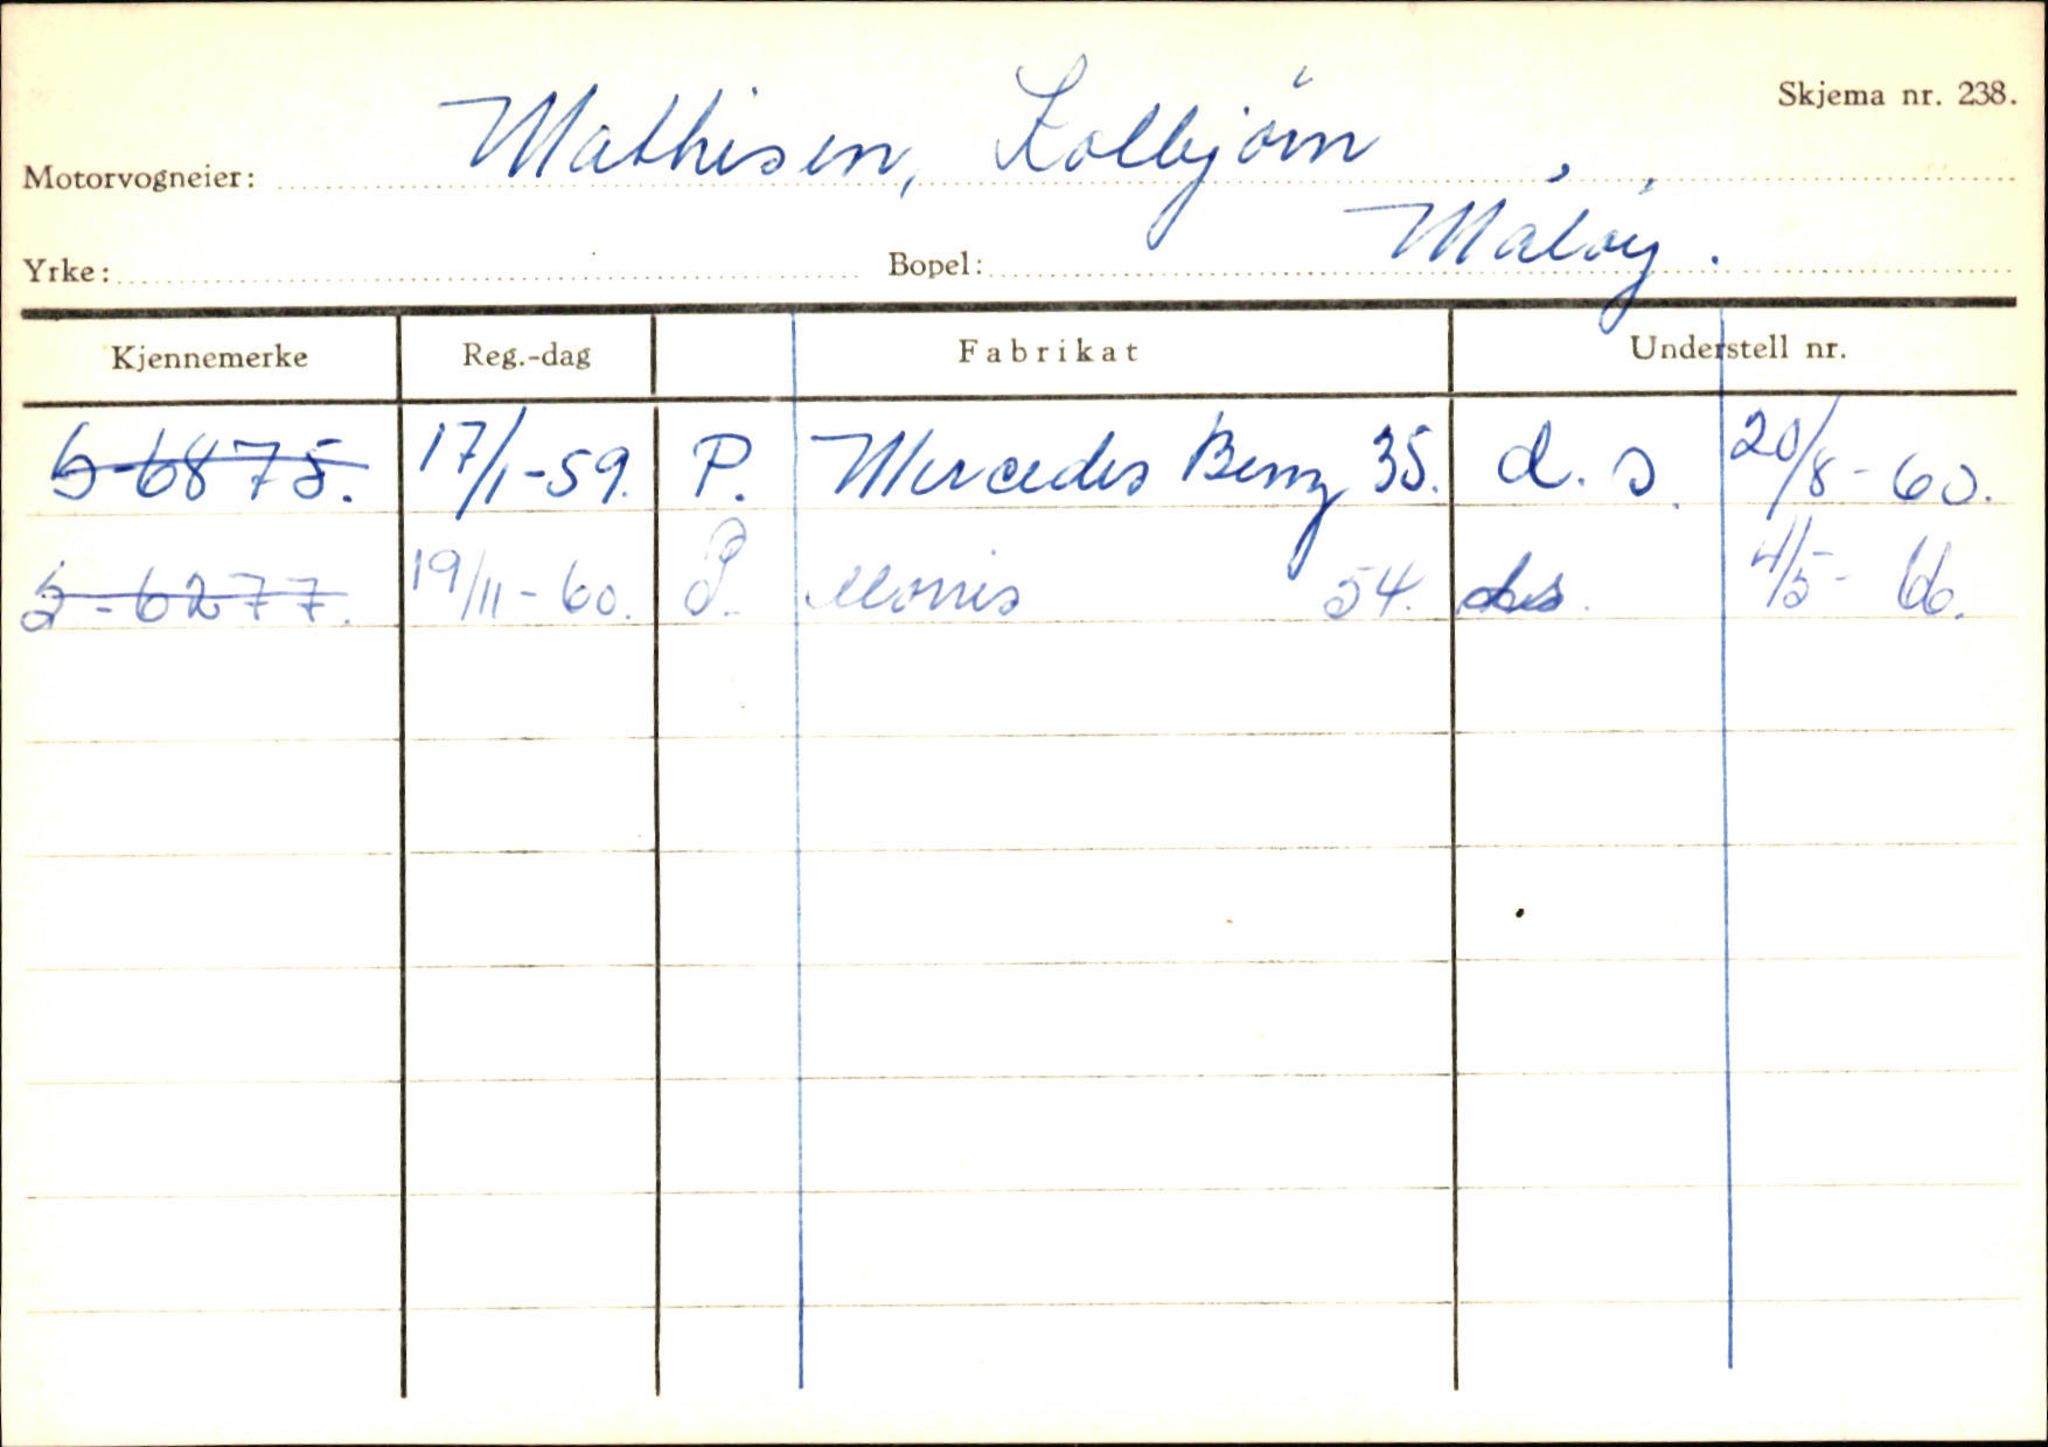 Skjema nr. 238.
Motorvogneier: Mathisen, Kolbjörn
Yrke: Bopel: Måløy.
Kjennemerke Reg.-dag Fabrikat Understell nr.
S-6875. 17/1-59. P. Mercedes Benz 35. d. s. 20/8-60.
S-6277. 19/11-60. P. Morris 54. ds. 4/5-66.